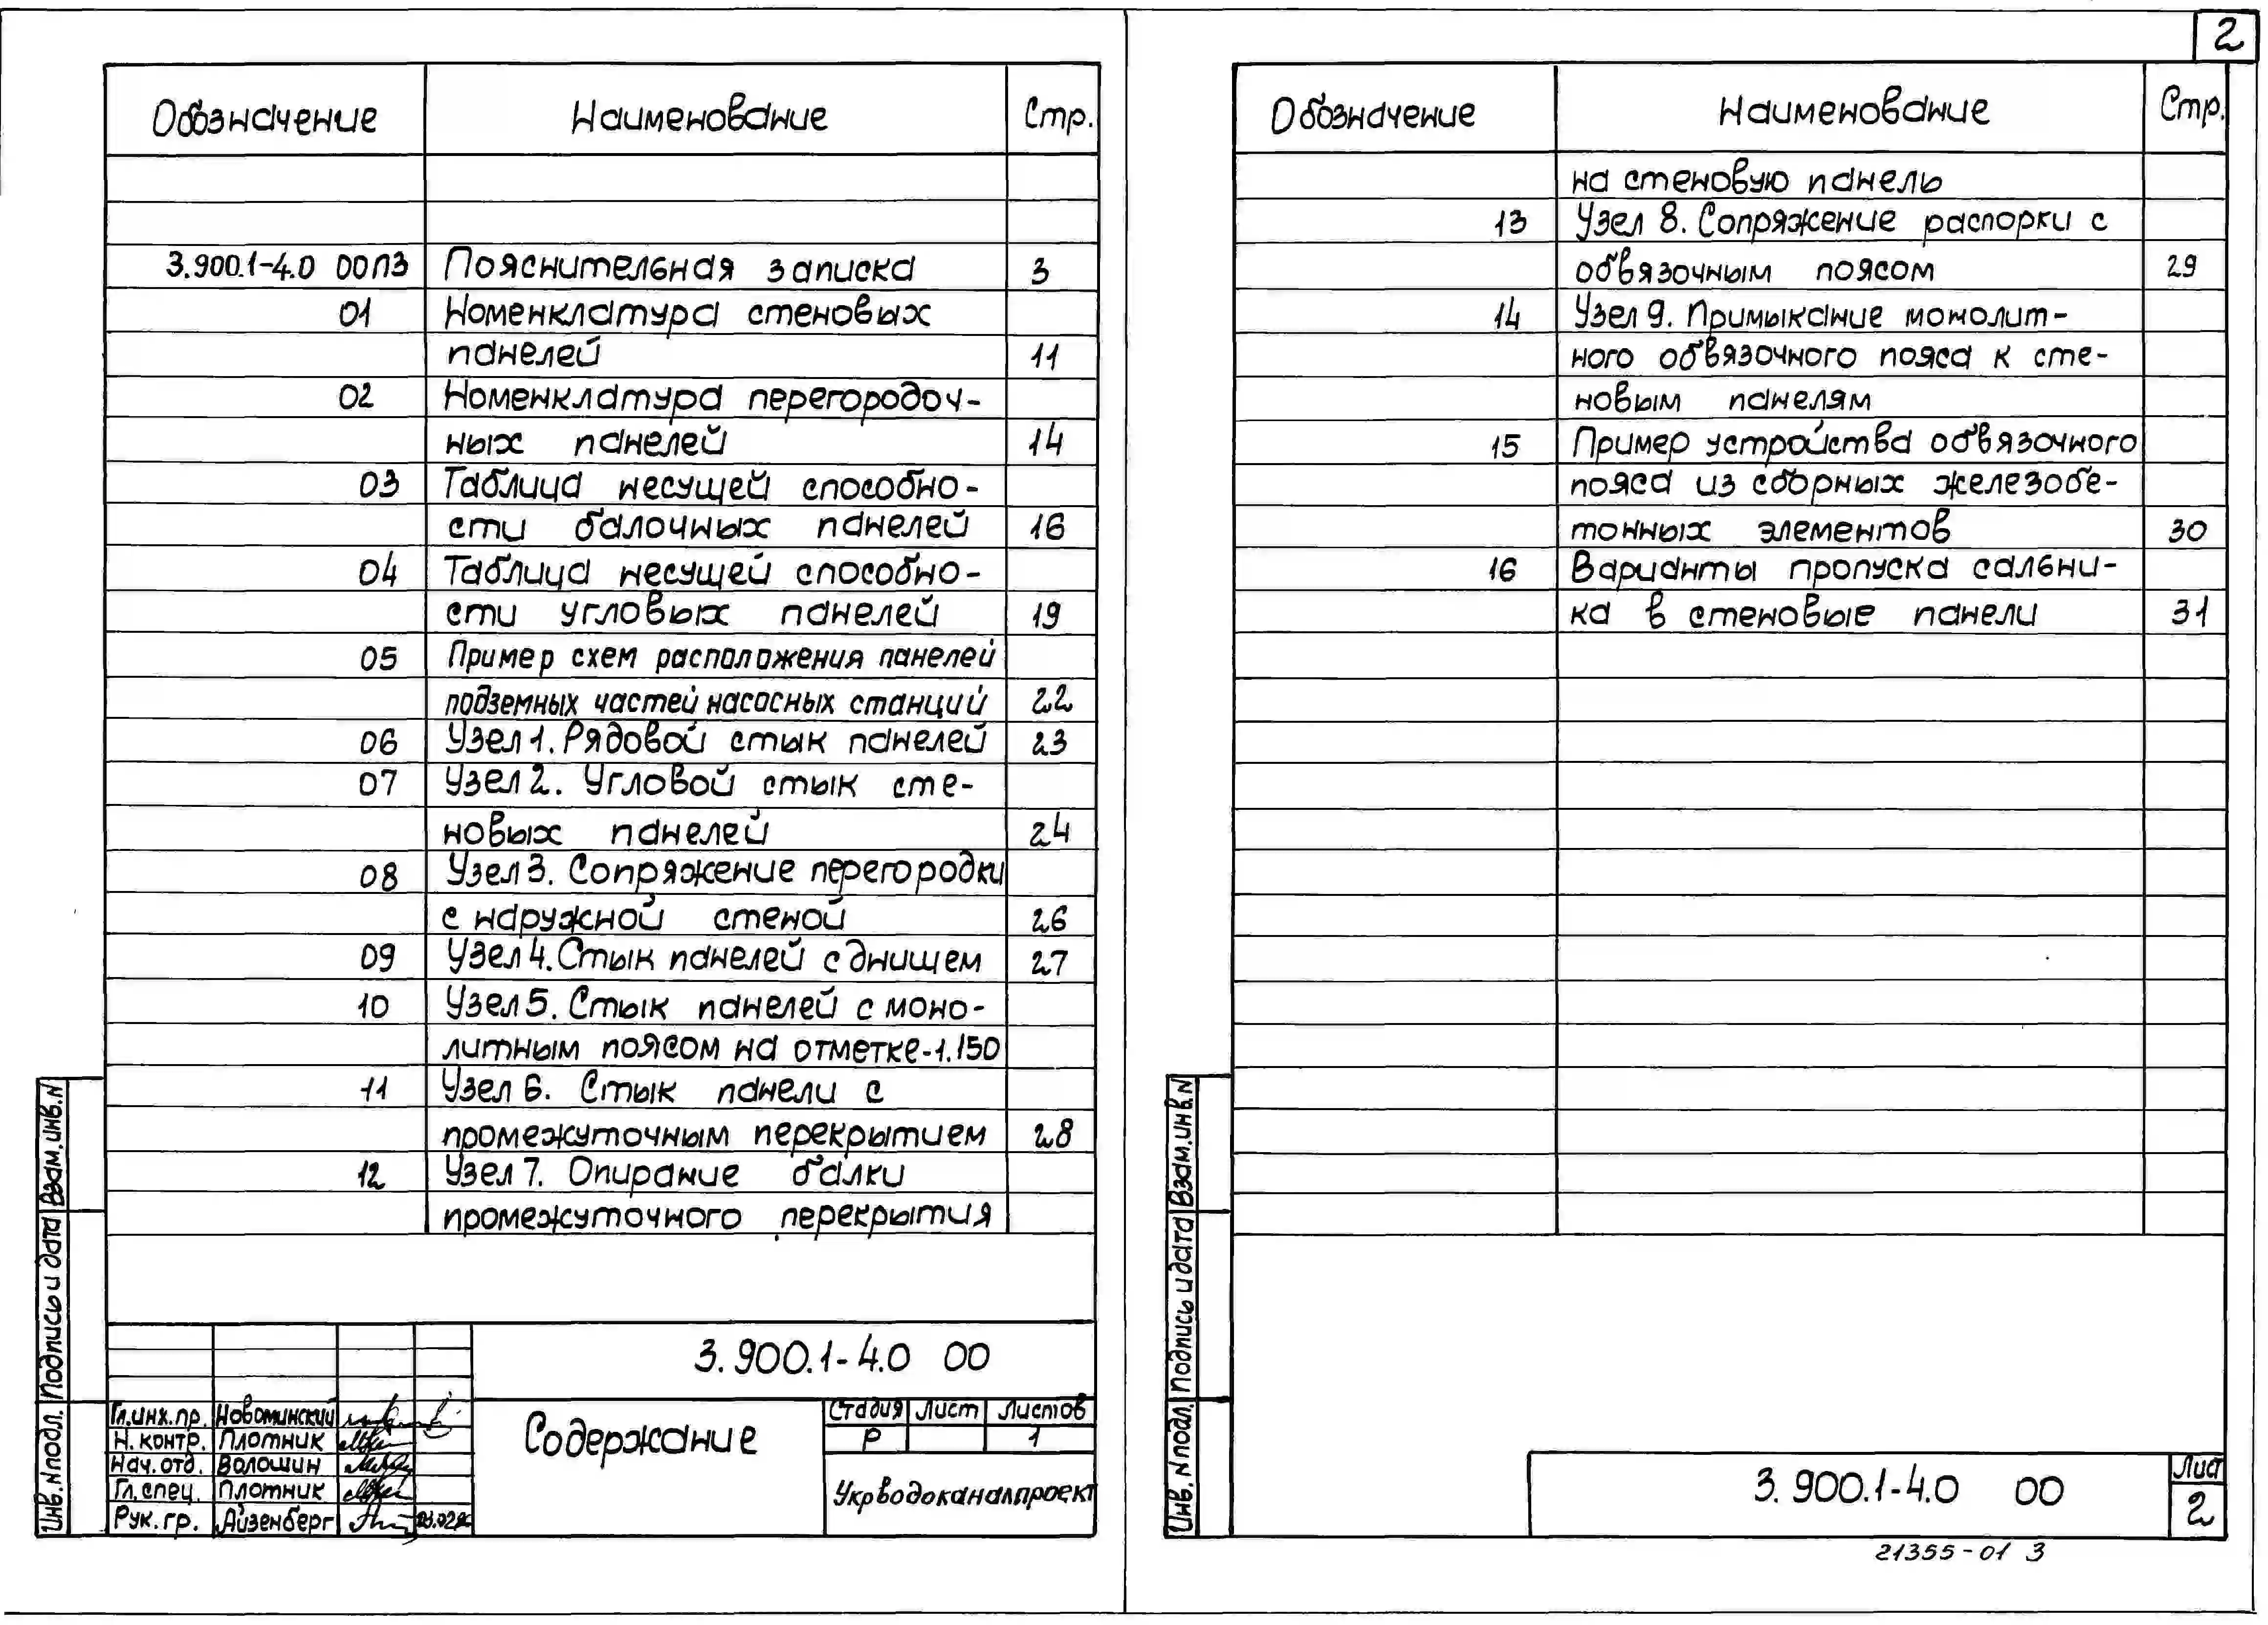 2
Обозначение Наименование Стр.
3.900.1-4.0 00ПЗ Пояснительная записка 3
01 Номенклатура стеновых
панелей 11
02 Номенклатура перегородоч-
ных панелей 14
03 Таблица несущей способно-
сти балочных панелей 16
04 Таблица несущей способно-
сти угловых панелей 19
05 Пример схем расположения панелей
подземных частей насосных станций 22
06 Узел 1. Рядовой стык панелей 23
07 Узел 2. Угловой стык сте-
новых панелей 24
08 Узел 3. Сопряжение перегородки
с наружной стеной 26
09 Узел 4. Стык панелей с днищем 27
10 Узел 5. Стык панелей с моно-
литным поясом на отметке-1.150
11 Узел 6. Стык панели с
промежуточным перекрытием 28
12 Узел 7. Опирание балки
промежуточного перекрытия
Взам.инв.N
Подпись и дата
Инв.Nподл.
3.900.1-4.0 00
Гл.инж.пр. Новоминский
Н.контр. Плотник
Нач.отд. Волошин
Гл.спец. Плотник
Рук.гр. Айзенберг
Содержание
Стадия Лист Листов
Р 1
Укрводоканалпроект
Обозначение Наименование Стр.
на стеновую панель
13 Узел 8. Сопряжение распорки с
обвязочным поясом 29
14 Узел 9. Примыкание монолит-
ного обвязочного пояса к сте-
новым панелям
15 Пример устройства обвязочного
пояса из сборных железобе-
тонных элементов 30
16 Варианты пропуска сальни-
ка в стеновые панели 31
Взам.инв.N
Подпись и дата
Инв.Nподл.
3.900.1-4.0 00
Лист
2
21355-01 3